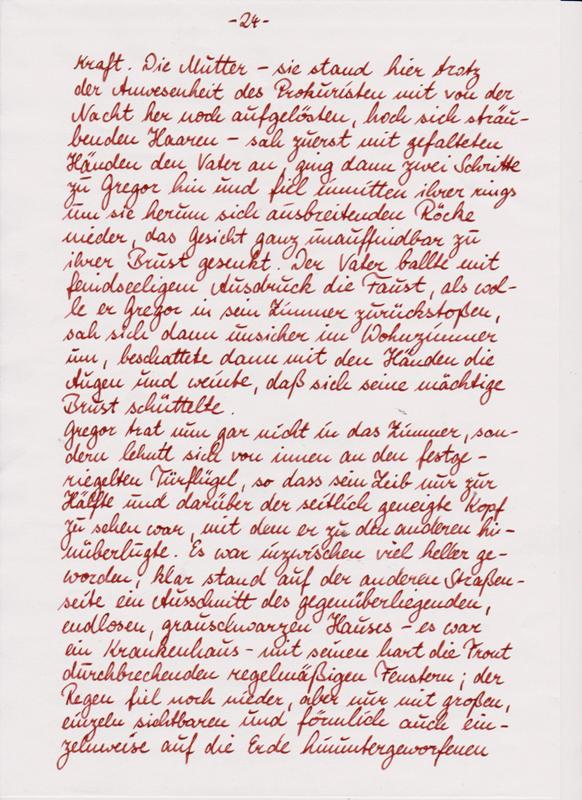 -24-
kraft. Die Mutter - sie stand hier trotz
der Anwesenheit des Prokuristen mit von der
Nacht her noch aufgelösten, hoch sich sträu-
benden Haaren - sah zuerst mit gefalteten
Händen den Vater an, ging dann zwei Schritte
zu Gregor hin und fiel inmitten ihrer rings
um sie herum sich ausbreitenden Röcke
nieder, das Gesicht ganz unauffindbar zu
ihrer Brust gesenkt. Der Vater ballte mit
feindseeligem Ausdruck die Faust, als wol-
le er Gregor in sein Zimmer zurückstoßen,
sah sich dann unsicher im Wohnzimmer
um, beschattete dann mit den Händen die
Augen und weinte, daß sich seine mächtige
Brust schüttelte.
Gregor trat nun gar nicht in das Zimmer, son-
dern lehnte sich von innen an den festge-
riegelten Türflügel, so dass sein Leib nur zur
Hälfte und darüber der seitlich geneigte Kopf
zu sehen war, mit dem er zu den anderen hi-
nüberlugte. Es war inzwischen viel heller ge-
worden; klar stand auf der anderen Straßen-
seite ein Ausschnitt des gegenüberliegenden,
endlosen, grauschwarzen Hauses - es war
ein Krankenhaus - mit seinen hart die Front
durchbrechenden regelmäßigen Fenstern; der
Regen fiel noch nieder, aber nur mit großen,
einzeln sichtbaren und förmlich auch ein-
zelnweise auf die Erde hinuntergeworfenen